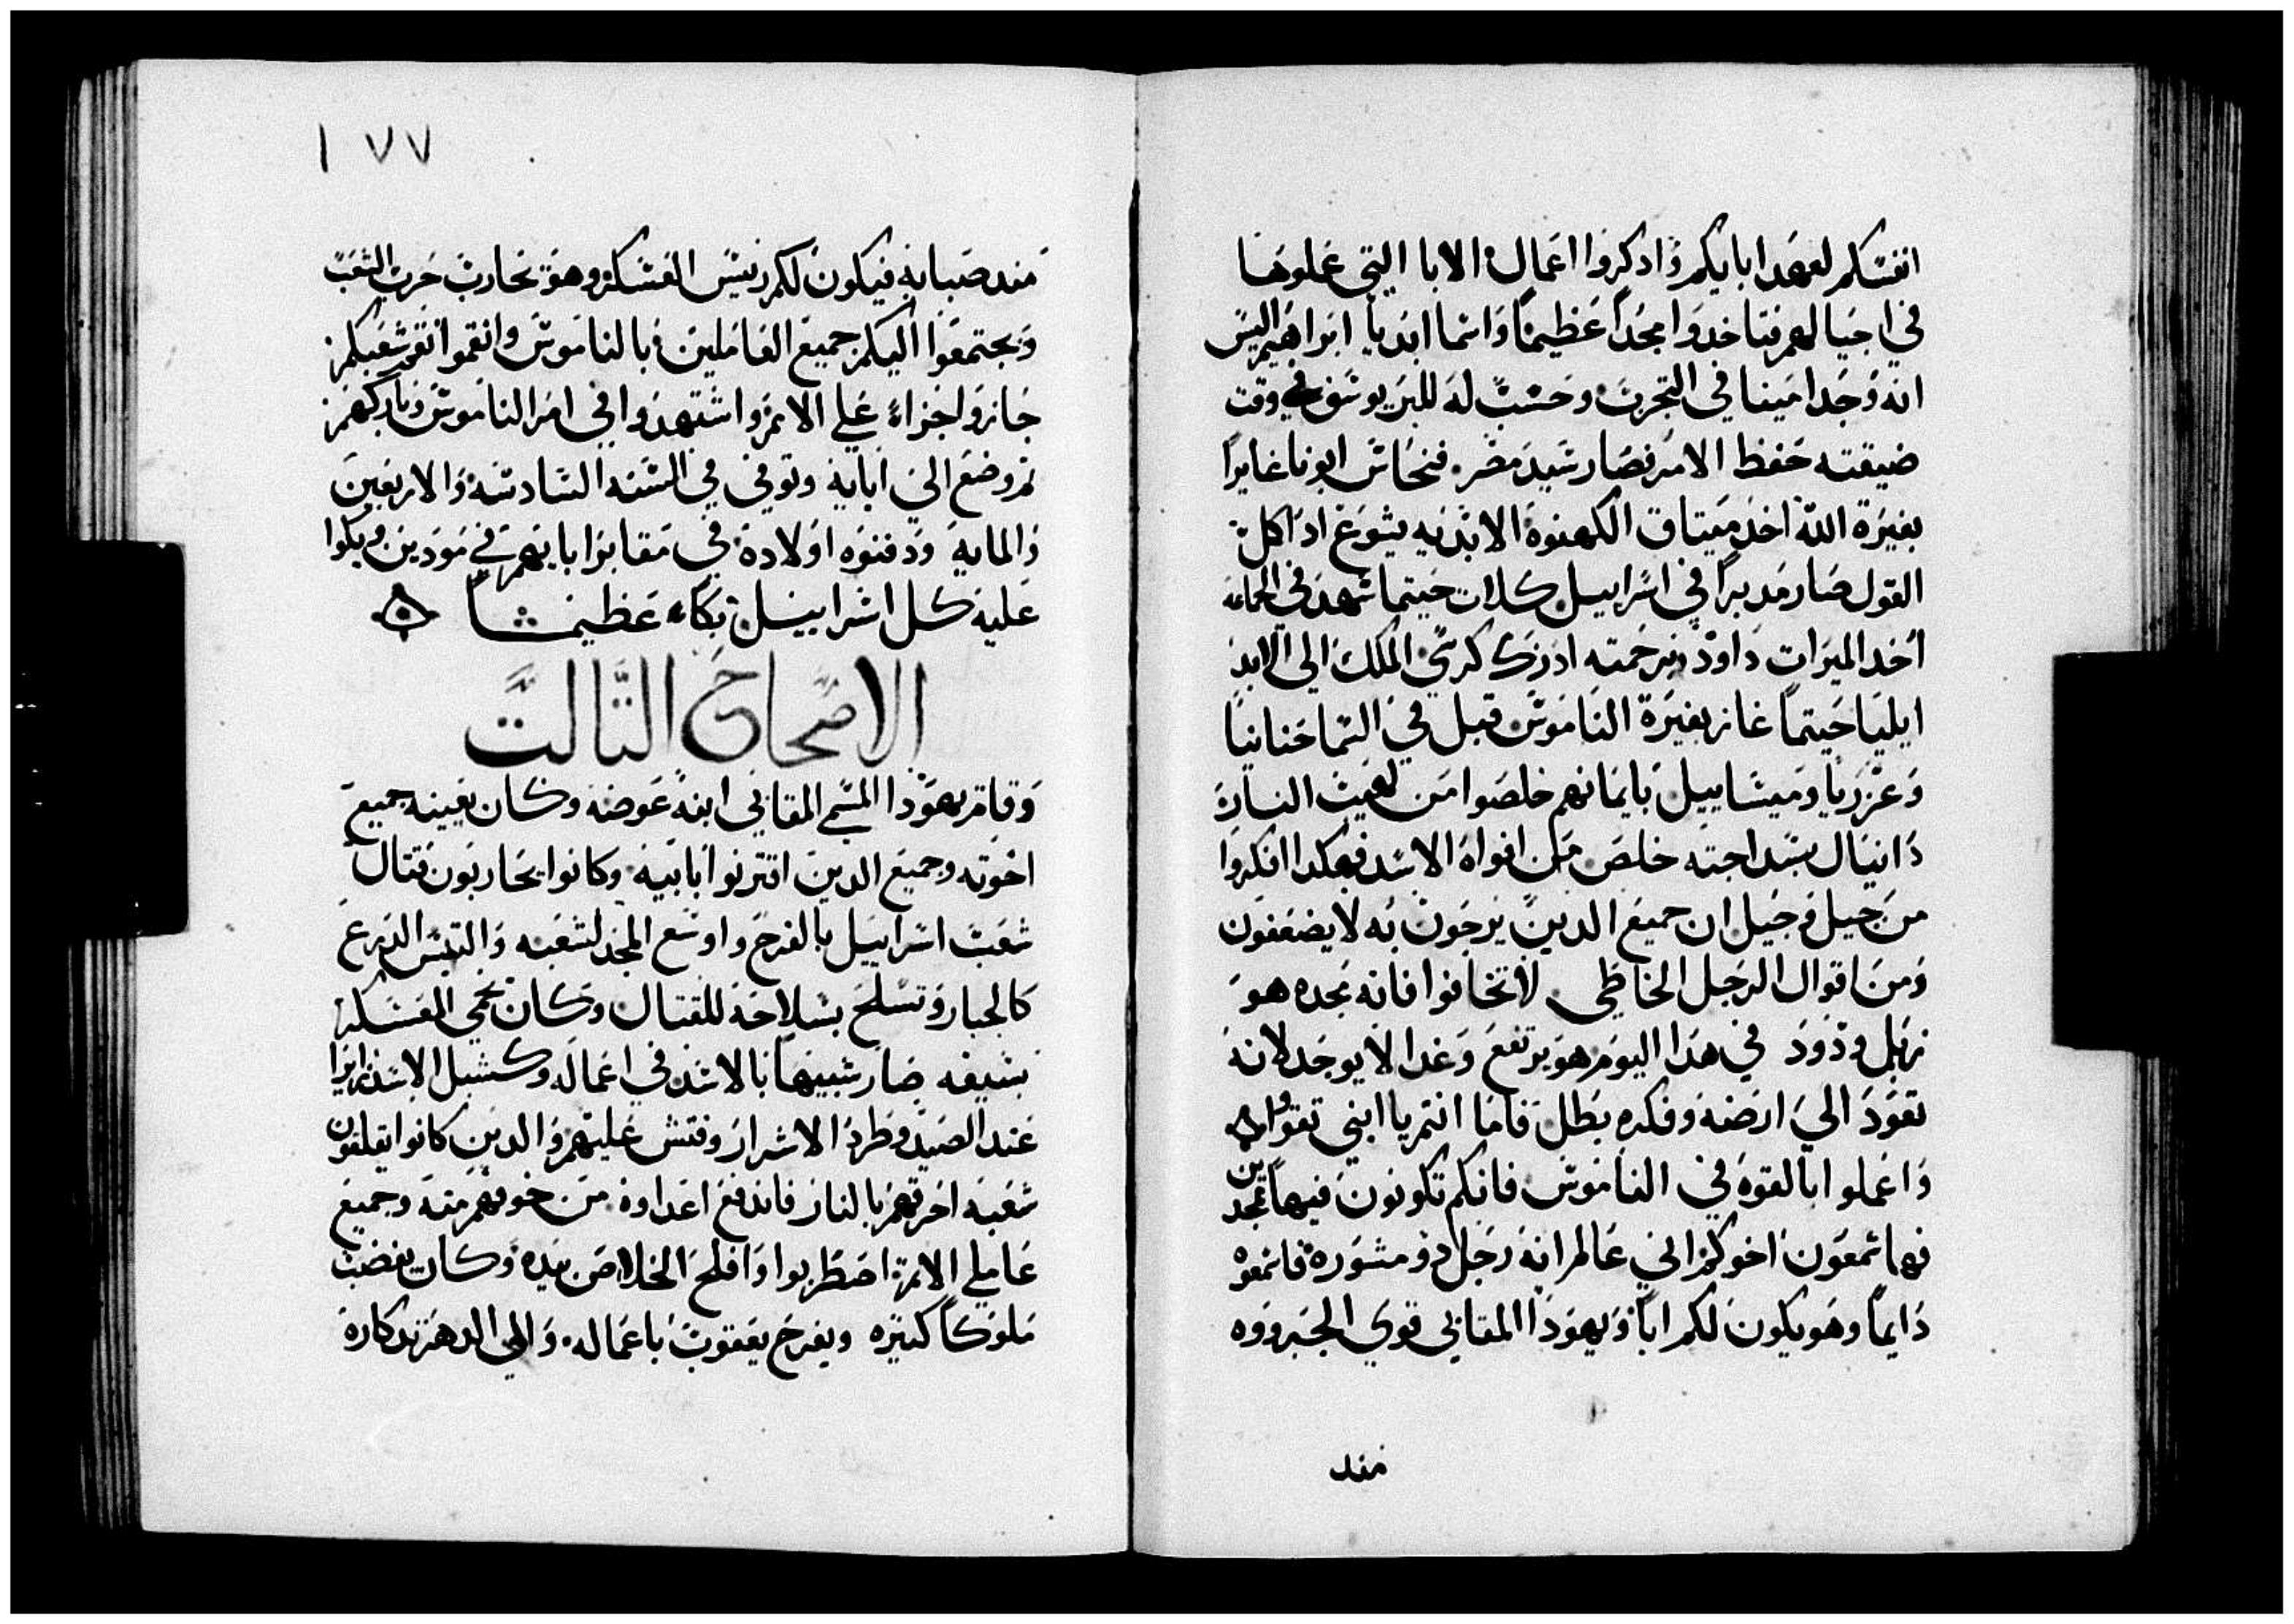 انفسكم لعهد ابايكم واذكروا اعمال الابا التي عملوها
في اجيالهم فتاخدوا مجداً عظيماً واسما ابديا ابراهيم اليس
انه وجد امينا في التجربة وحسب له للبر يوسف في وقت
ضيقته حفظ الامر فصار سيد مصر فنحاس ابونا غايرا
بغيرة الله اخد ميتاق الكهنوة الابديه يشوع اد اكل
القول صار مدبراً في اسراييل كلاب حيتما شهد في الجماعه
اخد الميرات داوود برحمته ادرك كرسي الملك الي الابد
ايليا حيتما غار بغيرة الناموس قبل في السما حنانيا
وعزريا وميشاييل بايمانهم خلصوا من لهيب النار
دانيال بسداجته خلص من افواه الاسد فهكدا افكروا
من جيل وجيل ان جميع الدين يرجون به لا يضعفون
ومن اقوال الرجل الخاطي لا تخافوا فانه مجده هو
زبل ودود في هدا اليوم هو يرتفع وغدا لا يوجد لانه
تعود الي ارضه وفكره بطل فاما انتم يا ابني تقووا
واعملوا بالقوه في الناموس فانكم تكونون فيها ممجدين
فها شمعون اخوكم اني عالم انه رجل دو مشوره فاسمعوه
دايماً وهو يكون لكم اباً ويهودا المقابي قوي الجبرووه
مند
١٧٧
مند صبايه فيكون لكم رييس العسكر وهو يحارب حرب الشعب
ويجتمعوا اليكم جميع العاملين بالناموس وانقموا نقمة شعبكم
جازوا جزاء علي الامم واشتهدوا في امر الناموس وباركهم
تم وضع الي ابايه وتوفي في السنه السادسه والاربعين
والمايه ودفنوه اولاده في مقابر ابايهم في مودين وبكوا
عليه كل اسراييل بكاء عظيما
الاصحاح التالت
وقام يهودا المسمي المقابي ابنه عوضه وكان يعينه جميع
اخوته وجميع الدين اقترنوا بابيه وكانوا يحاربون قتال
شعب اسراييل بالفرح واوسع المجد لشعبه والتبس الدرع
كالجبار وتسلح بسلاحه للقتال وكان يحمي العسكر
بسيفه صار شبيها بالاسد في اعماله وكشبل الاسد زايرا
عند الصيد وطرد الاشرار وفتش عليهم والدين كانوا يقلقون
شعبه احرقهم بالنار فاندفع اعداوه من خوفهم منه وجميع
عاملي الامم اضطربوا وافلح الخلاص بيده وكان يغضب
ملوكاً كتيره ويفرح يعقوب باعماله والي الدهر تدكاره